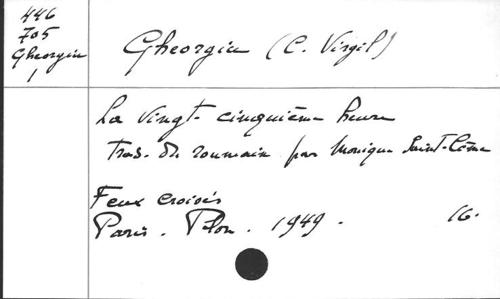 446
705
Gheorgiu
1
Gheorgiu (C. Virgil)
La Vingt-cinquième heure
trad. du roumain par Monique Saint-Côme
Feux croisés
Paris. Plon. 1949. 16.